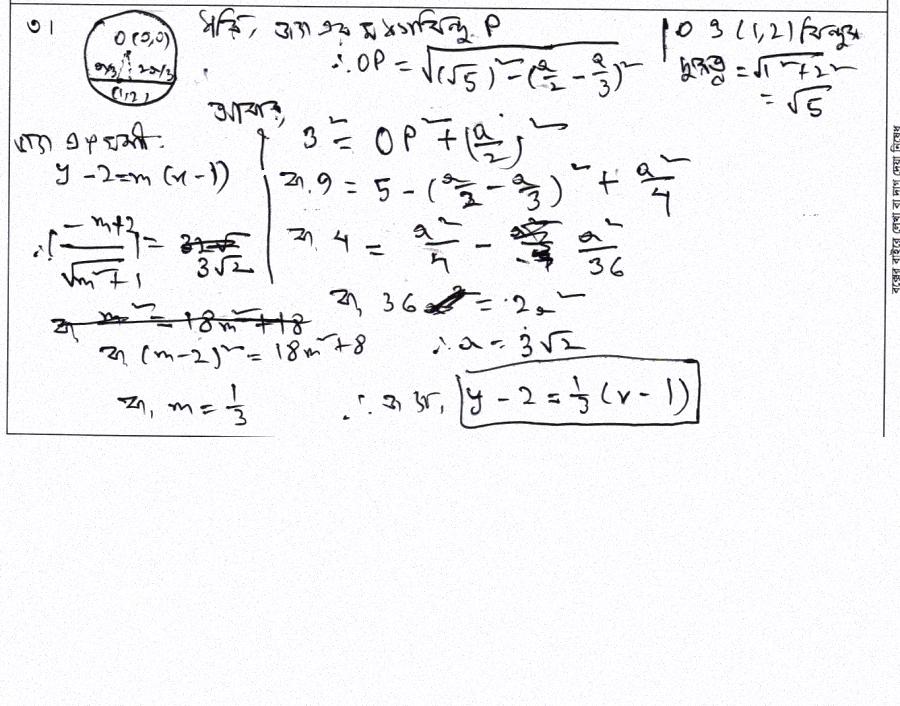 ৩।
O (0,0)
a/3 2a/3
(1,2)
ধরি, জ্যা এর মধ্যবিন্দু P
∴ OP = √((√5)² - (a/2 - a/3)²)
O ও (1,2) বিন্দুর
দূরত্ব = √(1² + 2²)
= √5
আবার,
3² = OP² + (a/2)²
বা, 9 = 5 - (a/2 - a/3)² + a²/4
বা, 4 = a²/4 - a²/36
বা, 36 = 2a²
∴ a = 3√2
জ্যা এর সমী:
y - 2 = m (x - 1)
∴ |(-m+2)/√(m²+1)| = 3√2
বা, m² = 18m² + 18
বা, (m-2)² = 18m² + 8
বা, m = 1/3
∴ জ্যা, y - 2 = 1/3 (x - 1)
বক্সের বাইরে লেখা বা দাগ দেয়া নিষেধ